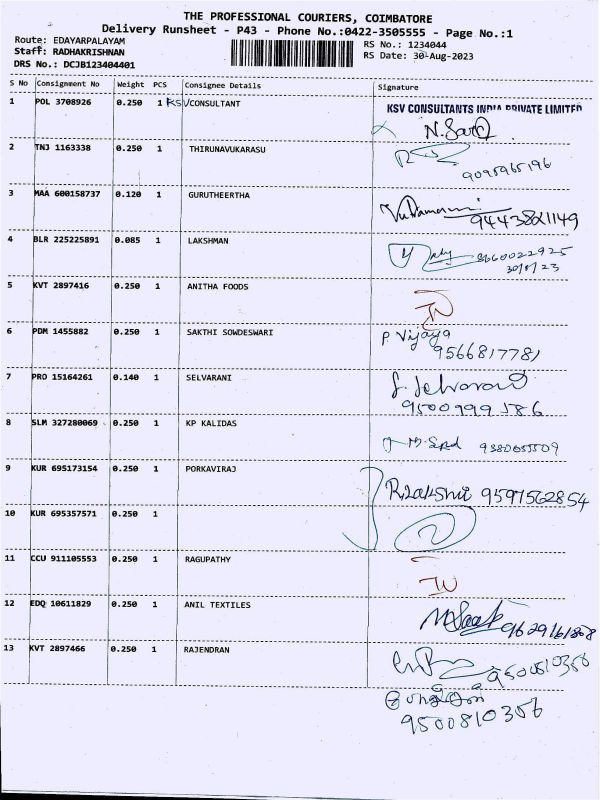 THE PROFESSIONAL COURIERS, COIMBATORE
Delivery Runsheet - P43 - Phone No.:0422-3505555 - Page No.:1
Route: EDAYARPALAYAM
RS No.: 1234044
Staff: RADHAKRISHNAN
RS Date: 30-Aug-2023
DRS No.: DCJB123404401
S No Consignment No Weight PCS Consignee Details Signature
1 POL 3708926 0.250 1 KSV CONSULTANT KSV CONSULTANTS INDIA PRIVATE LIMITED
2 TNJ 1163338 0.250 1 THIRUNAVUKARASU
9095965196
3 MAA 600158737 0.120 1 GURUTHEERTHA
9443821149
4 BLR 225225891 0.085 1 LAKSHMAN
8660022925
30/8/23
5 KVT 2897416 0.250 1 ANITHA FOODS
6 PDM 1455882 0.250 1 SAKTHI SOWDESWARI P Vijaya
9566817781
7 PRO 15164261 0.140 1 SELVARANI S. Selvarani
9500999586
8 SLM 327280069 0.250 1 KP KALIDAS
9 KUR 695173154 0.250 1 PORKAVIRAJ
9597562854
10 KUR 695357571 0.250 1
11 CCU 911105553 0.250 1 RAGUPATHY
12 EDQ 10611829 0.250 1 ANIL TEXTILES
9629161808
13 KVT 2897466 0.250 1 RAJENDRAN
9500810356
9500810356